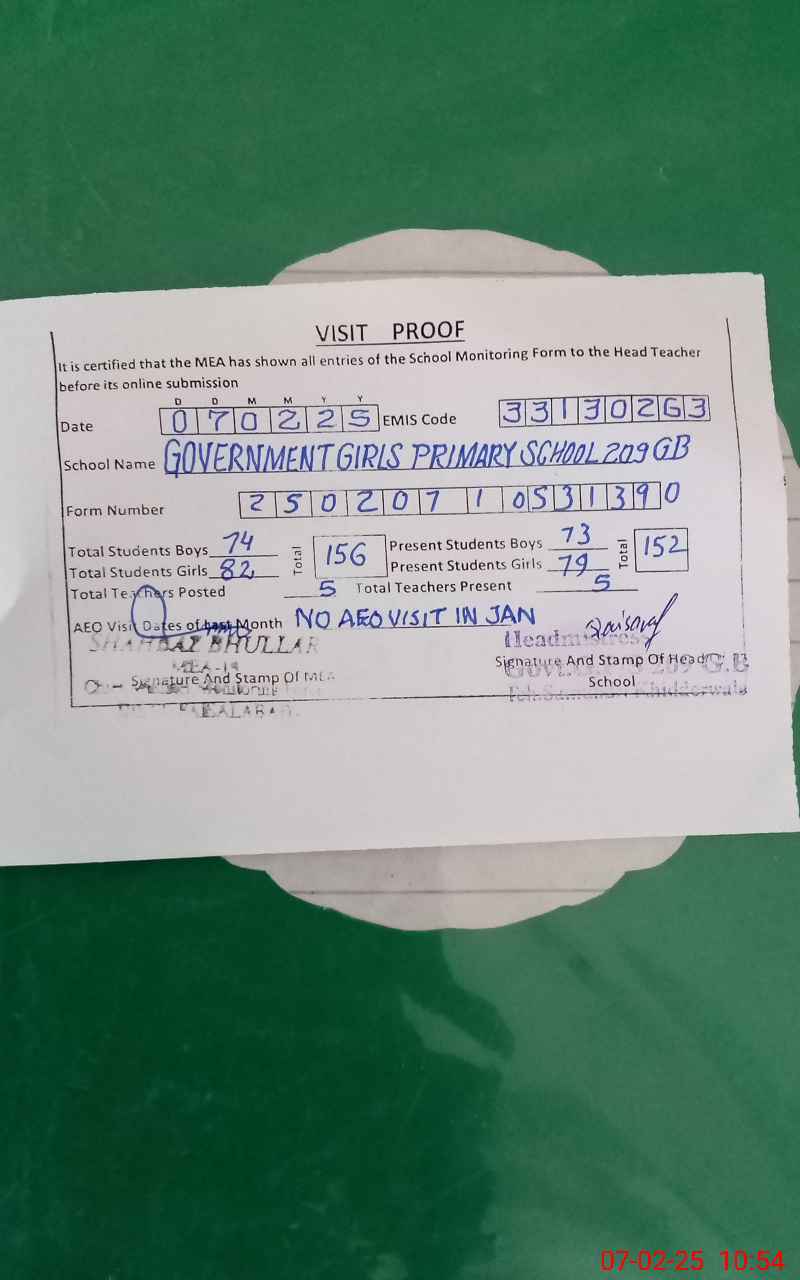 VISIT PROOF
It is certified that the MEA has shown all entries of the School Monitoring Form to the Head Teacher
before its online submission
D D M M Y Y
Date 070225 EMIS Code 33130263
School Name GOVERNMENT GIRLS PRIMARY SCHOOL 209 GB
Form Number 25020710531390
Total Students Boys 74 Total 156 Present Students Boys 73 Total 152
Total Students Girls 82 Present Students Girls 79
Total Teachers Posted 5 Total Teachers Present 5
AEO Visit Dates of Month NO AEO VISIT IN JAN
SHAHBAZ BHULLAR Headmistress
MEA-19
Signature And Stamp Of MEA Signature And Stamp Of Head
Monitoring School
209 G.B
07-02-25 10:54